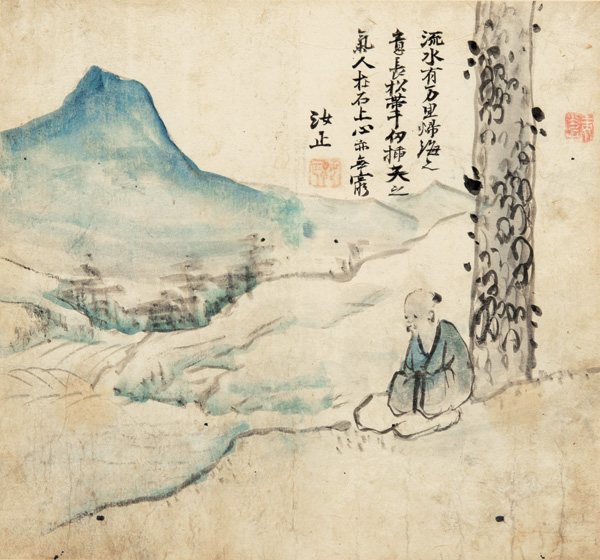 流水有万里歸海之
意長松帶千仞揷天之
氣人在石上心亦無窮
汝正